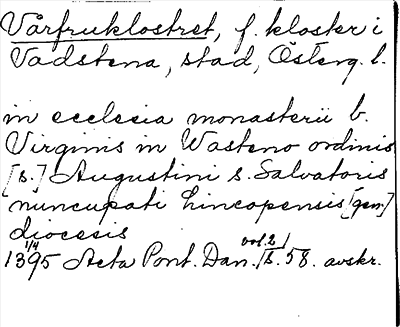 Vårfruklostret, f. kloster i
Vadstena, stad, Österg. l.
in ecclesia monasterii b.
Virginis in Wasteno ordinis
[s.] Augustini s. Salvatoris
nuncupati Lincopensis [gen]
diocesis
1395 1/4 Acta Pont. Dan. vol. 2 s. 58. avskr.